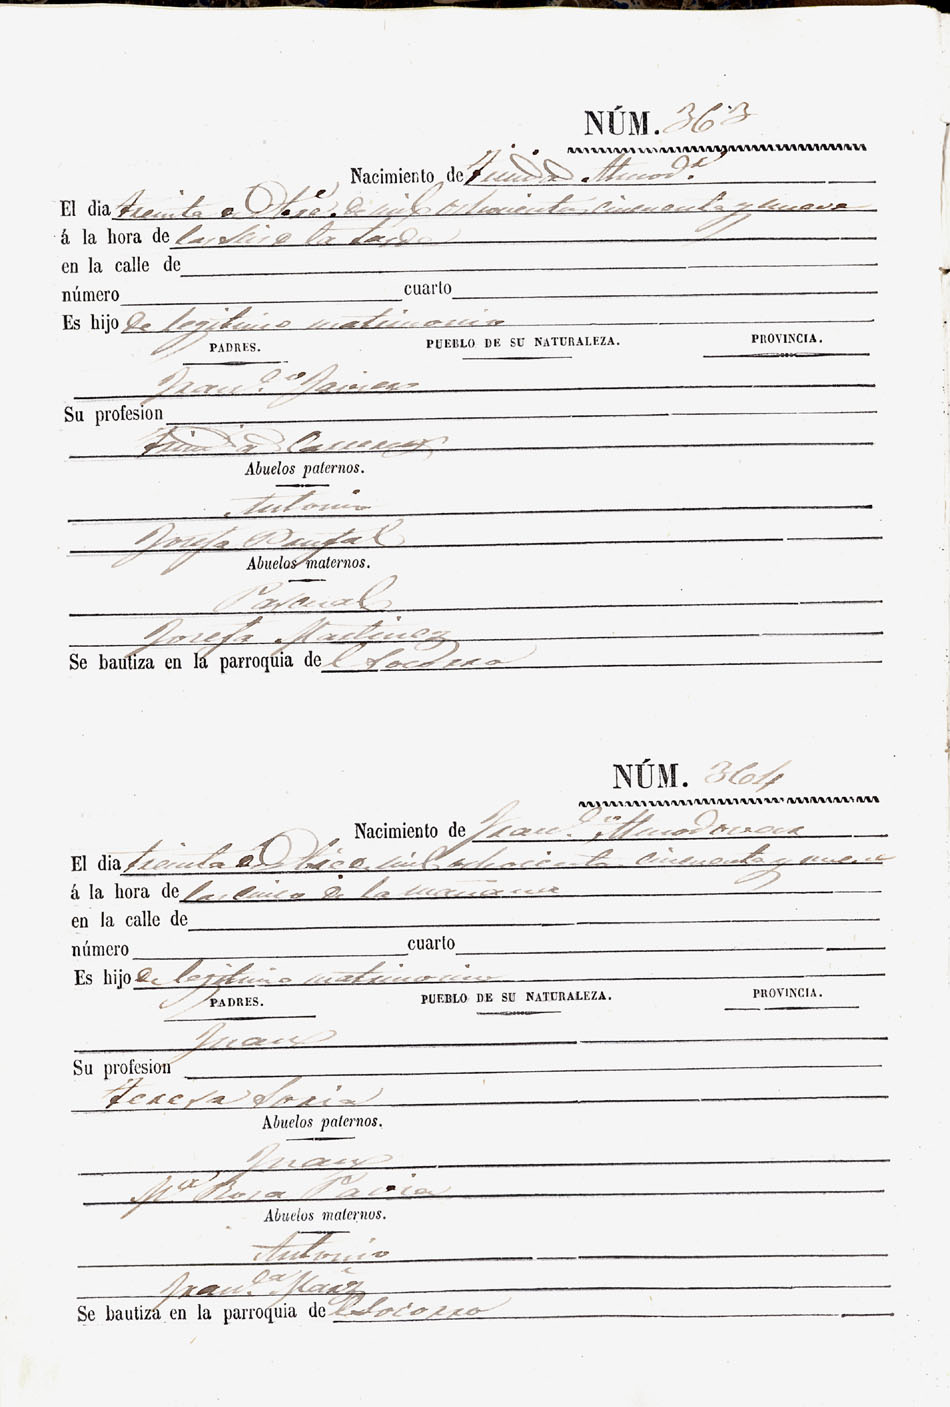 NÚM. 363
Nacimiento de Trinid.d Almod.r
El dia treinta de Dbre. de mil ochocientos cincuenta y nueve
á la hora de las de la tarde
en la calle de
número cuarto
Es hijo de legitimo matrimonio
PADRES. PUEBLO DE SU NATURALEZA. PROVINCIA.
Fran.co Javier
Su profesion
Trinid.d
Abuelos paternos.
Antonio
Josefa
Abuelos maternos.
Pascual
Josefa Martinez
Se bautiza en la parroquia de l Socorro
NÚM. 364
Nacimiento de Fran.co Almodovar
El dia treinta de mil ochocientos cincuenta y nueve
á la hora de las cinco de la mañana
en la calle de
número cuarto
Es hijo de legitimo matrimonio
PADRES. PUEBLO DE SU NATURALEZA. PROVINCIA.
Juan
Su profesion
Teresa Soria
Abuelos paternos.
Juan
M.a Rosa Pavia
Abuelos maternos.
Antonio
Fran.ca
Se bautiza en la parroquia de l Socorro